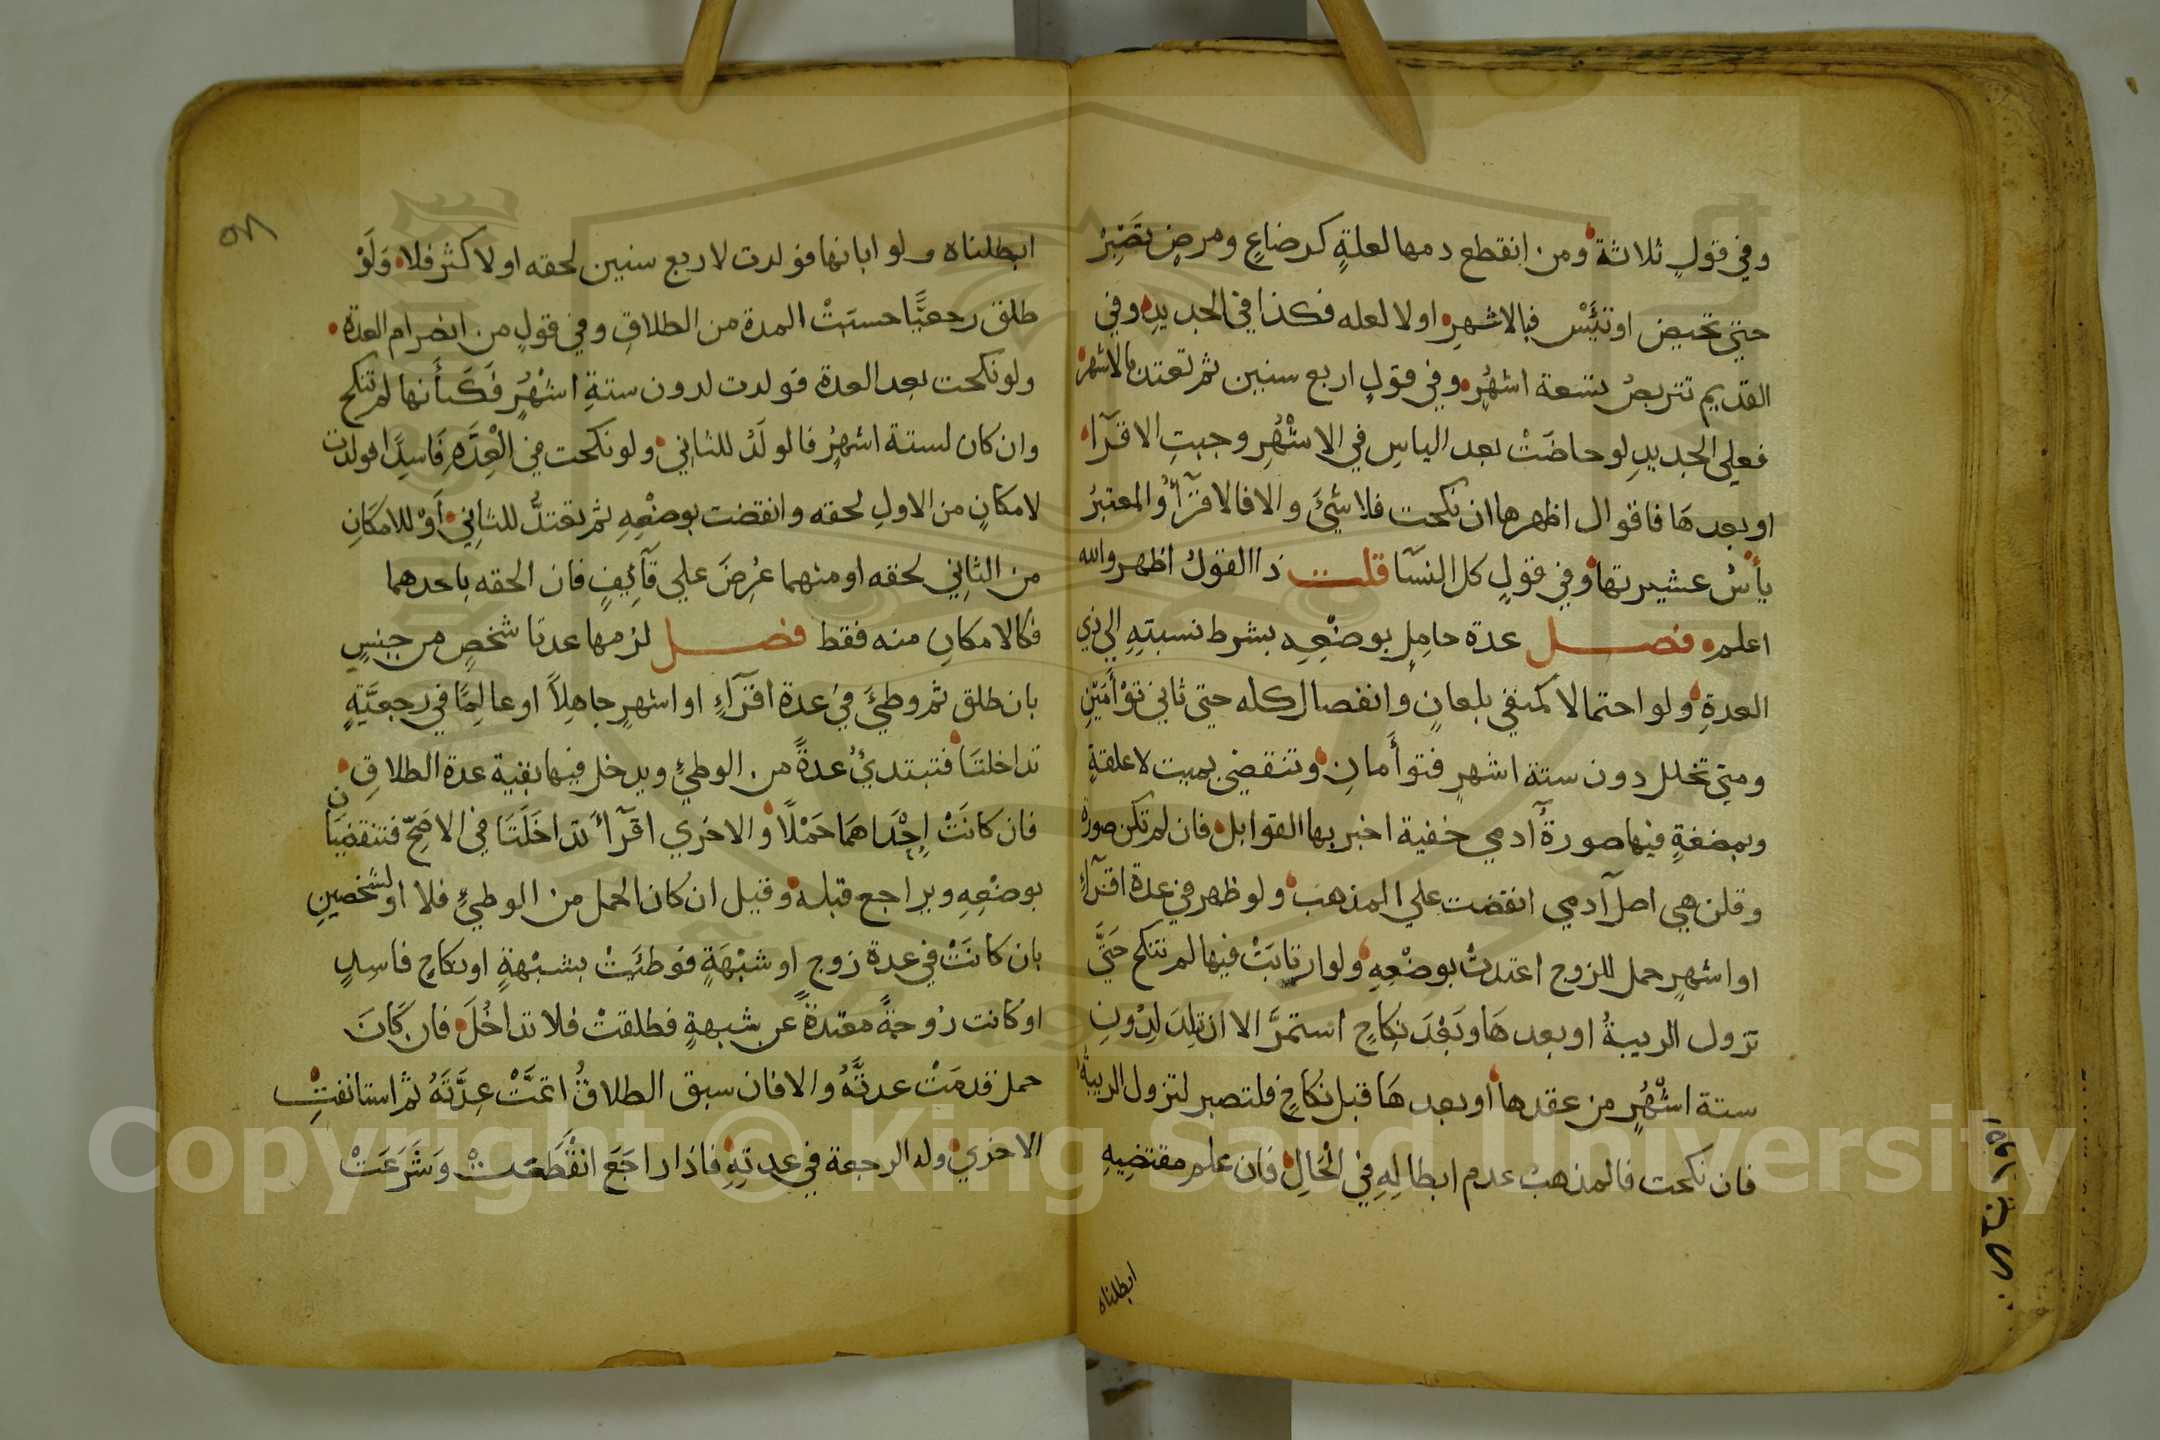 وفي قولٍ ثلاثة ومن انقطع دمها لعلةٍ كرضاعٍ ومرضٍ تَصْبِرُ
حتي تحيض او تيْئَسْ فبالاشهرِ او لا لعله فكذا في الجديدِ وفي
القديم تتربصُ تسعة اشهُرٍ وفي قولٍ اربع سنين ثم تعتد بالاشهر
فعلي الجديدِ لو حاضَتْ بعد الياسِ في الاشْهُرِ وجبتِ الاقرآء
او بعدهَا فاقوال اظهرها ان نكحت فلا شَيْئَ والا فالاقرآءُ والمعتبرُ
يأسُ عشيرتها وفي قولٍ كل النسَآ قلت ذا القولُ اظهر والله
اعلم فصل عدة حامِلٍ بوضْعِهِ بشرط نسبتِهِ الي ذي
العدةِ ولو احتمالا كمنفي بلعانٍ وانفصال كله حتي ثاني توْأمَيْنِ
ومتي تخلل دون ستة اشهرٍ فتوأمانِ وتنقضي بميت لا علقةٍ
وبمضغةٍ فيها صورةُ آدمي خفية اخبر بها القوابل فان لم تكن صورة
وقلن هي اصل آدمي انقضت علي المذهب ولو ظهر في عدة اقرآءٍ
او اشهرٍ حمل للزوج اعتدتْ بوضْعِهِ ولو ارتابَتْ فيها لم تنكح حَتَّي
تزول الريبةُ او بعدهَا وبَعْدَ نِكاحٍ استمرَّ الا ان تلِدَ لِدُونِ
ستة اشْهُرٍ من عقدها او بعدهَا قبل نكاحٍ فلتصبر لتزول الريبةُ
فان نكحت فالمذهب عدم ابطالِهِ في الحَالِ فان علم مقتضِيهِ
ابطلناه
ابطلناه ولو ابانها فولدت لاربع سنين لحقه او لاكثر فلا وَلَوْ
طلق رجعيًّا حسبَتْ المدة من الطلاقِ وفي قولٍ من انصرام العدة
ولو نكحت بعد العدة فولدت لدون ستةِ اشْهُرٍ فَكَأَنها لم تنكح
وان كان لستة اشهرٍ فالولَدُ للثاني ولو نكحت في العِدَّهِ فَاسِدًا فولدت
لامكانٍ من الاولِ لحقه وانقضت بوضْعِهِ ثم تعتدُّ للثاني أوْ للامكَانِ
من الثاني لحقه او منهما عُرِضَ علي قآئفٍ فان الحقه باحدهما
فكالامكانِ منه فقط فصل لزمها عدتا شخصٍ من جنسٍ
بان طلق ثم وطئَ في عدة اقرآءٍ او اشهرٍ جاهِلاً او عالِمًا في رجعيَّةٍ
تداخلتَا فتبتدئُ عدةً من الوطئِ ويدخل فيها بقية عدة الطلاقِ
فان كانَتْ إحْدَاهمَا حَمْلًا والاخري اقرآءً تداخَلَتَا في الاصَحِّ فتنقضيَان
بوضْعِهِ ويراجع قبله وقيل ان كان الحمل من الوطئِ فلا او لشخصينِ
بان كانَتْ في عدة زوجٍ او شبْهَةٍ فوطئَتْ بشبْهةٍ او نكاحٍ فاسِدٍ
او كانت زوجةً معتدةً عن شبهةٍ فطلقتْ فلا تداخُلَ فان كَانَ
حمل قدمَتْ عدتُهُ والا فان سبق الطلاقُ اتمَّتْ عِدَّتَهُ ثم استانفتِ
الاخري وله الرجعة في عدتِهِ فاذا راجَعَ انقَطَعَتْ وَشَرَعَتْ
Copyright © King Saud University